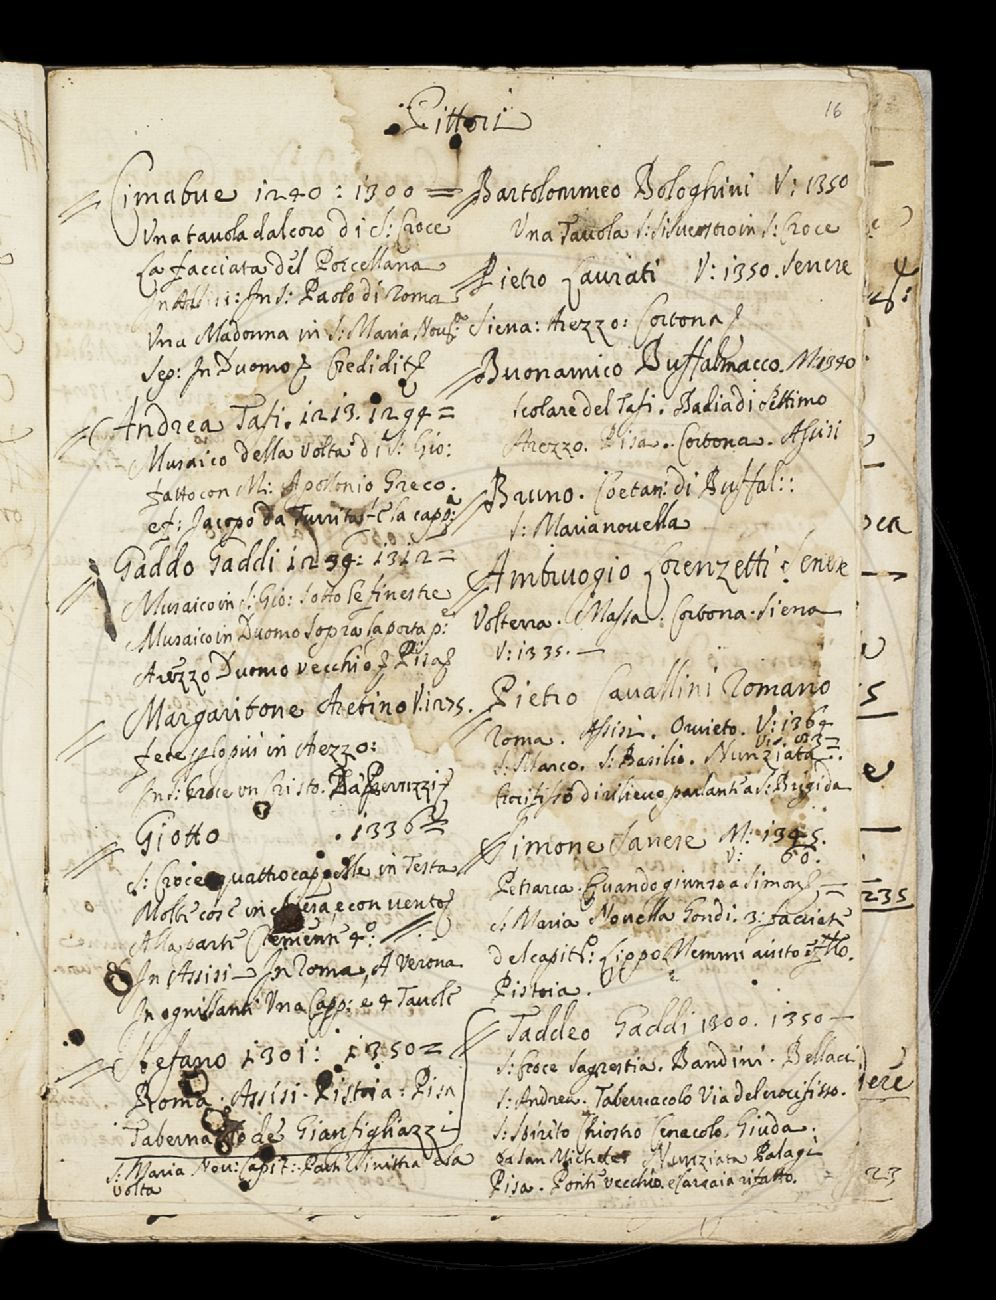 Pittori
16
Cimabue 1240 : 1300 =
Una tavola dal coro di S: Croce
La facciata del Porcellana
In Assisi: In S: Paolo di Roma
Una Madonna in S: Maria Nou:
Sep: In Duomo Credidit
Andrea Tafi. 1213. 1294 =
Musaico della volta di S: Gio:
fatto con M: Apollonio Greco.
et: Jacopo da Turrita e la capp:
Gaddo Gaddi 1239: 1312 =
Musaico in S: Gio: sotto le finestre
Musaico in Duomo sopra la porta p:
Arezzo Duomo vecchio Pisa
Margaritone Aretino V: 1275.
fece il più in Arezzo:
In S: Croce un Cristo. Da Peruzzi
Giotto . 1336
S: Croce quattro cappelle in Testa
Molte cose in chiesa, e convento
Alla parte Clemente 4º:
In Assisi In Roma, A Verona
In ognissanti Una Capp: e 4 Tavole
Stefano 1301: 1350 =
Roma. Assisi. Pistoia: Pisa
Tabernacolo de Gianfigliazzi
S: Maria Nou: Capit: Parte Sinistra e la
volta
Bartolommeo Bologhini V: 1350
Una Tavola S: Silvestro in S: Croce
Pietro Laurati V: 1350. Senese
Siena: Arezzo: Cortona
Buonamico Buffalmacco. M: 1340
scolare del Tafi. Badia di Settimo
Arezzo. Pisa. Cortona. Assisi
Bruno. Coetan: di Buffal::
S: Maria novella
Ambruogio Lorenzetti Senese
Volterra. Massa. Cortona. Siena
V: 1335.
Pietro Cavallini Romano
Roma. Assisi. Orvieto. V: 1364
S: Marco. S: Basilio. Nunziata
Crocifisso di rilievo parlante a S: Brigida
Simone Sanese M: 1345.
V: 60.
Petrarca. Quando giunse a Simon
S: Maria Novella Gondi. 3: facciate
del capit: Lippo Memmi aiuto
Pistoia.
Taddeo Gaddi 1300. 1350
S: Croce Sagrestia. Bandini. Bellacci
S: Andrea. Tabernacolo Via del crocifisso.
S: Spirito Chiostro Cenacolo. Giuda.
Orsan Michele Nunziata Palagi
Pisa. Ponte vecchio. e Carraia rifatto.
235
23